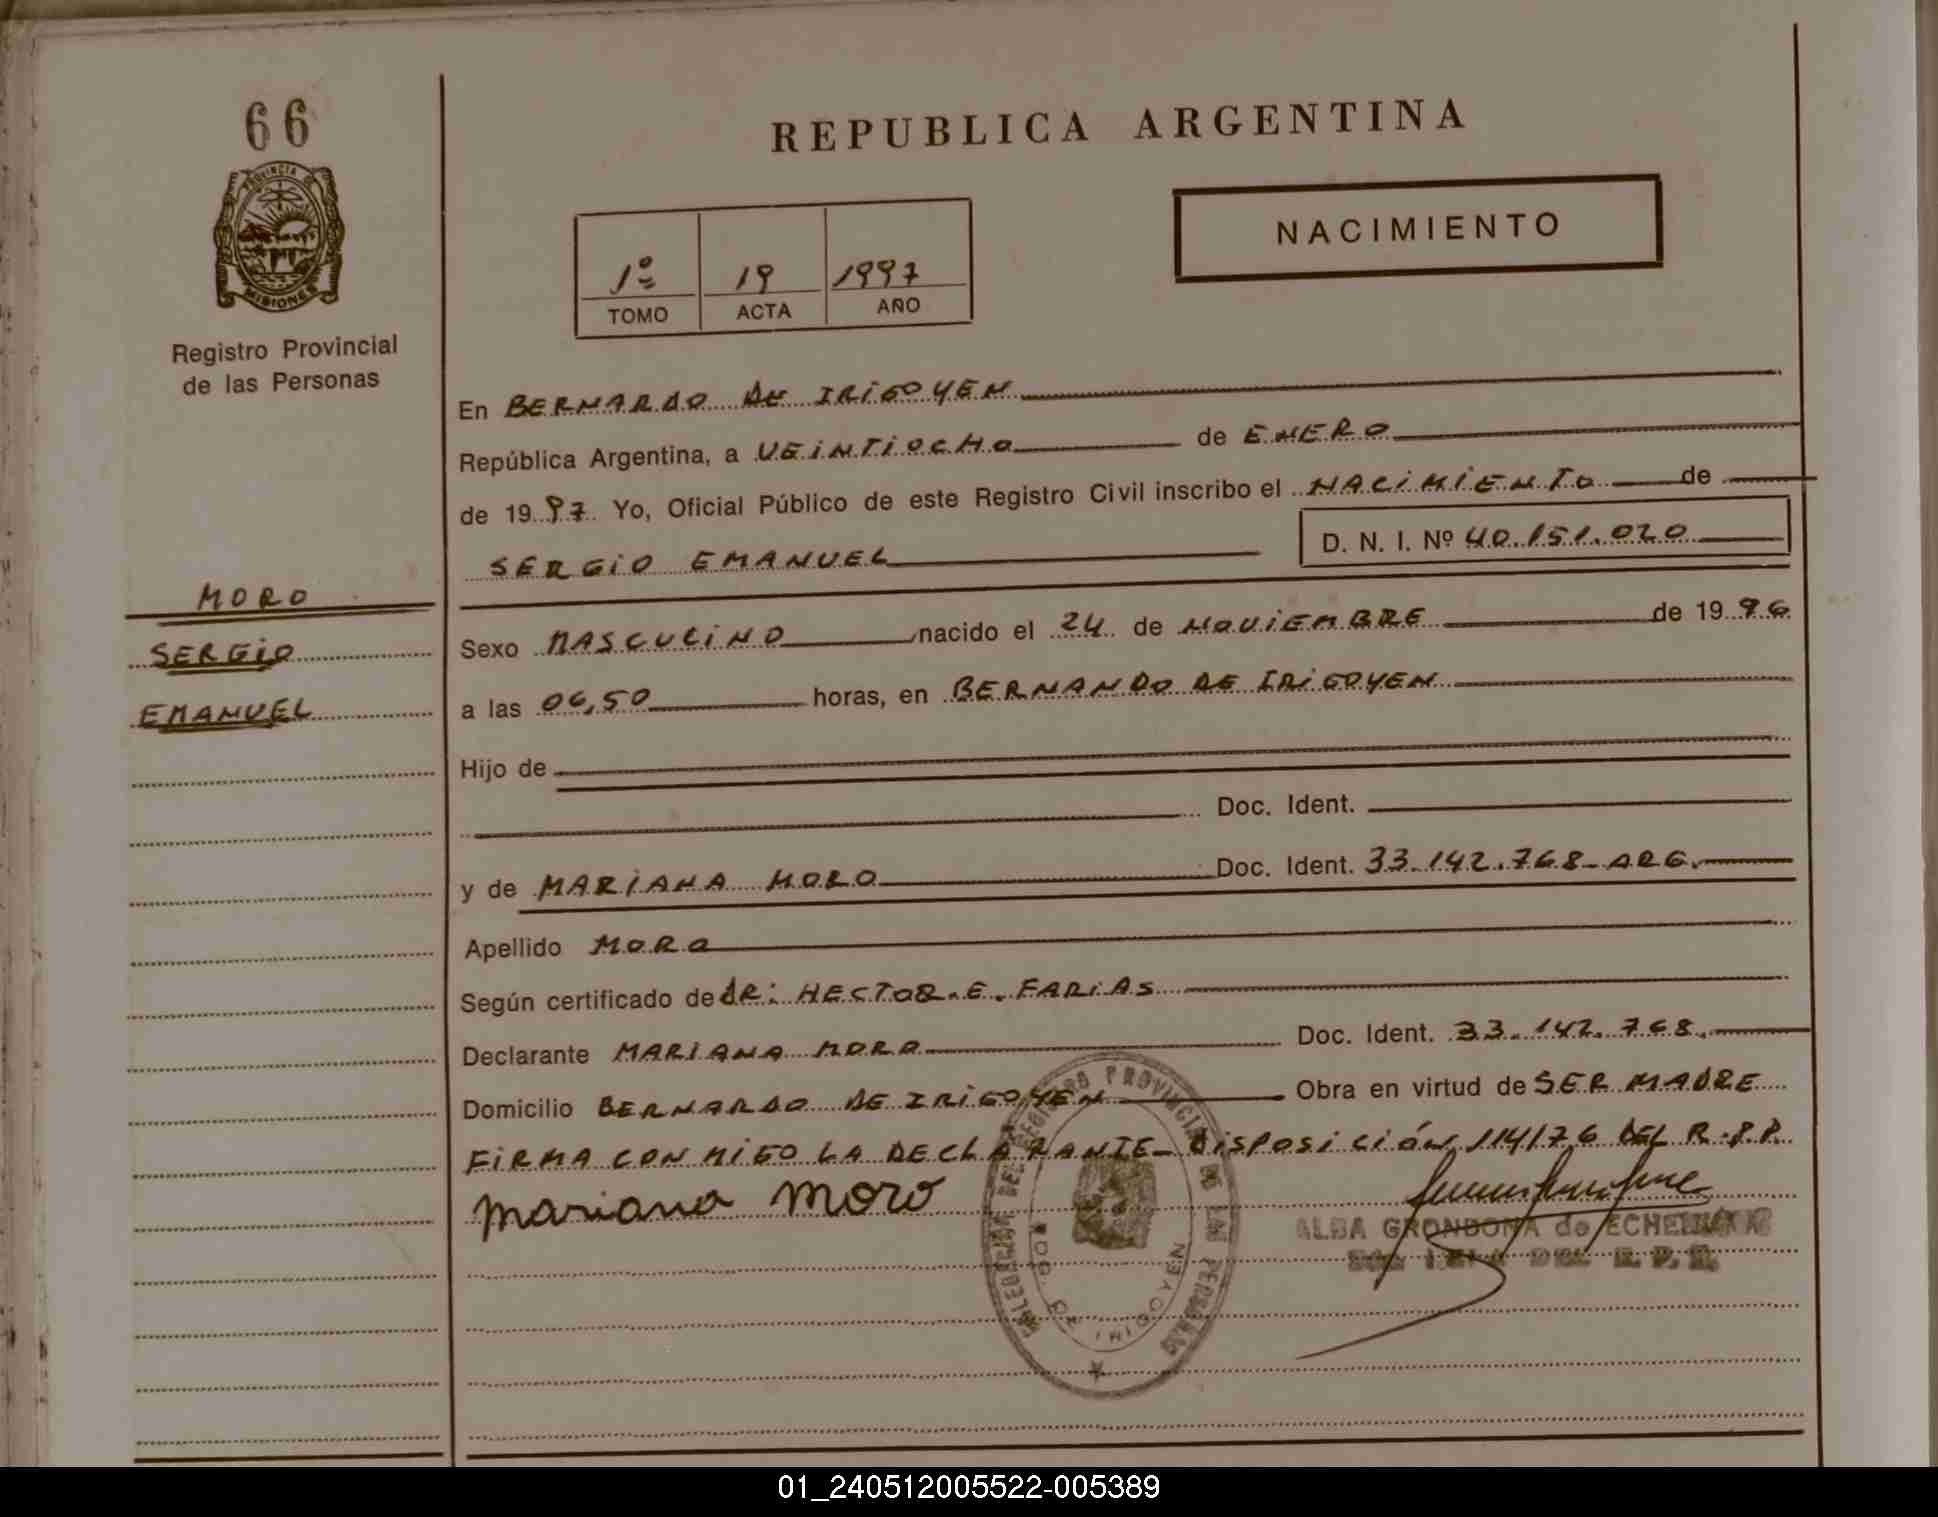 66
REPUBLICA ARGENTINA
PROVINCIA DE
MISIONES
NACIMIENTO
1º 19 1997
TOMO ACTA AÑO
Registro Provincial
de las Personas
En BERNARDO DE IRIGOYEN
República Argentina, a VEINTIOCHO de ENERO
de 1997 Yo, Oficial Público de este Registro Civil inscribo el NACIMIENTO de
SERGIO EMANUEL D. N. I. Nº 40.151.020
MORO
SERGIO
EMANUEL
Sexo MASCULINO nacido el 24 de NOVIEMBRE de 1996
a las 06,50 horas, en BERNANDO DE IRIGOYEN
Hijo de
Doc. Ident.
y de MARIANA MORO Doc. Ident. 33.142.768-ARG.
Apellido MORO
Según certificado de DR: HECTOR.E.FARIAS
Declarante MARIANA MORO Doc. Ident. 33.142.768.
Domicilio BERNARDO DE IRIGOYEN Obra en virtud de SER MADRE
FIRMA CONMIGO LA DECLARANTE- DISPOSICIÓN 114/76 DEL R.P.P.
mariana moro
ALBA GRONDONA de
DEL R. P. P.
DEL REGISTRO PROVINCIAL DE LAS PERSONAS
01_240512005522-005389